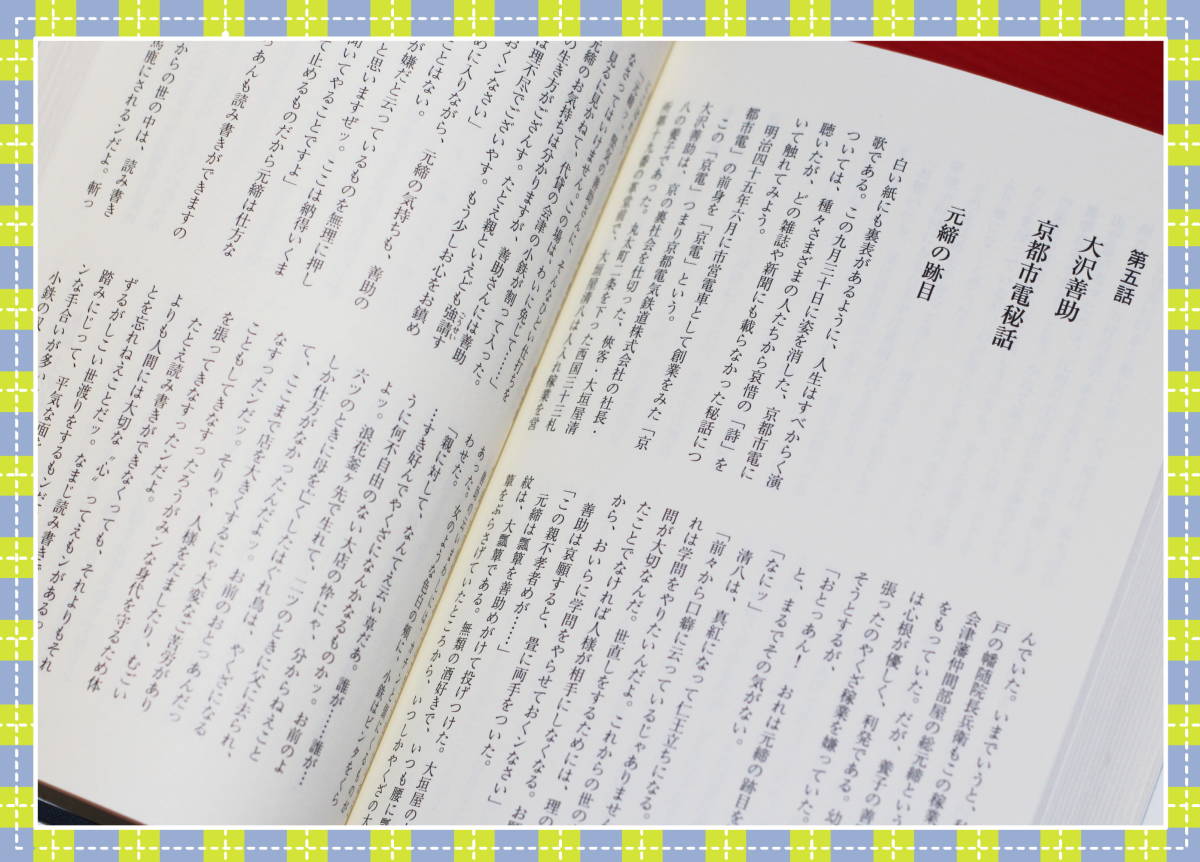 第五話
大沢善助
京都市電秘話
元締の跡目
白い紙にも裏表があるように、人生はすべからく演
歌である。この九月三十日に姿を消した、京都市電に
ついては、種々さまざまの人たちから哀惜の「詩」を
聴いたが、どの雑誌や新聞にも載らなかった秘話につ
いて触れてみよう。
明治四十五年六月に市営電車として創業をみた「京
都市電」の前身を「京電」という。
この「京電」、つまり京都電気鉄道株式会社の社長・
大沢善助は、京の裏社会を仕切った、俠客・大垣屋清
八の養子であった。
んでいた。いまでいうと、
戸の幡随院長兵衛もこの稼業
会津藩仲間部屋の総元締という
をもっていた。だが、
は心根が優しく、利発である。幼
張ったのやくざ稼業を嫌っていた。
そうとするが、
「おとっあん! おれは元締の跡目を
と、まるでその気がない。
「なにッ」
清八は、真紅になって仁王立ちになる。
「前々から口癖に云っているじゃありません
れは学問をやりたいんだよ。これからの世の
問が大切なんだ。世直しをするためには、理の
たことでなければ人様が相手にしなくなる。お
から、おいらに学問をやらせておくンなさい」
善助は哀願すると、畳に両手をついた。
「この親不孝者めが……」
元締は、大瓢簞を善助めがけて投げつけた。大垣屋の
紋は、瓢簞である。無類の酒好きで、いつも腰に
簞をぶらさげていたところから、いつしかやくざの大
見るに見かねて、代貸の会津の小鉄が割って入った。
元締のお気持ちは分かりますが、善助さんには善助
の生き方がござんす。たとえ親といえども強請す
は理不尽でございやす。もう少しお心をお鎮め
おくンなさい」
めに入りながら、元締の気持ちも、善助の
ことはない。
が嫌だと云っているものを無理に押し
と思いますぜッ。ここは納得いくま
聞いてやることですよ」
て止めるものだから元締は仕方な
っあんも読み書きができますの
からの世の中は、読み書き
馬鹿にされるンだよ。斬っ
わせた。
「親に対して、なんてえ云い草だあ。誰が……誰が…
…すき好んでやくざになんかなるものかッ。お前のよ
うに何不自由のない大店の枠にゃ、分からねえこと
よッ。浪花釜ヶ先で生れて、二ツのときに父に去られ、
六ツのときに母を亡くしたはぐれ鳥は、やくざになる
しか仕方がなかったんだよッ。お前のおとっあんだっ
て、ここまで店を大きくするにゃ大変なご苦労があり
なすったンだッ。そりゃ、人様をだましたり、むごい
こともしてきなすったろうがみンな身代を守るため体
を張ってきなすったンだよ。
たとえ読み書きができなくっても、それよりもそれ
よりも人間には大切な〝心〟ってえもンがあるっ
とを忘れねえことだッ。なまじ読み書きで
ずるがしこい世渡りをするもンだ
踏みにじって、平気な面を
ンな手合いが多い
小鉄の